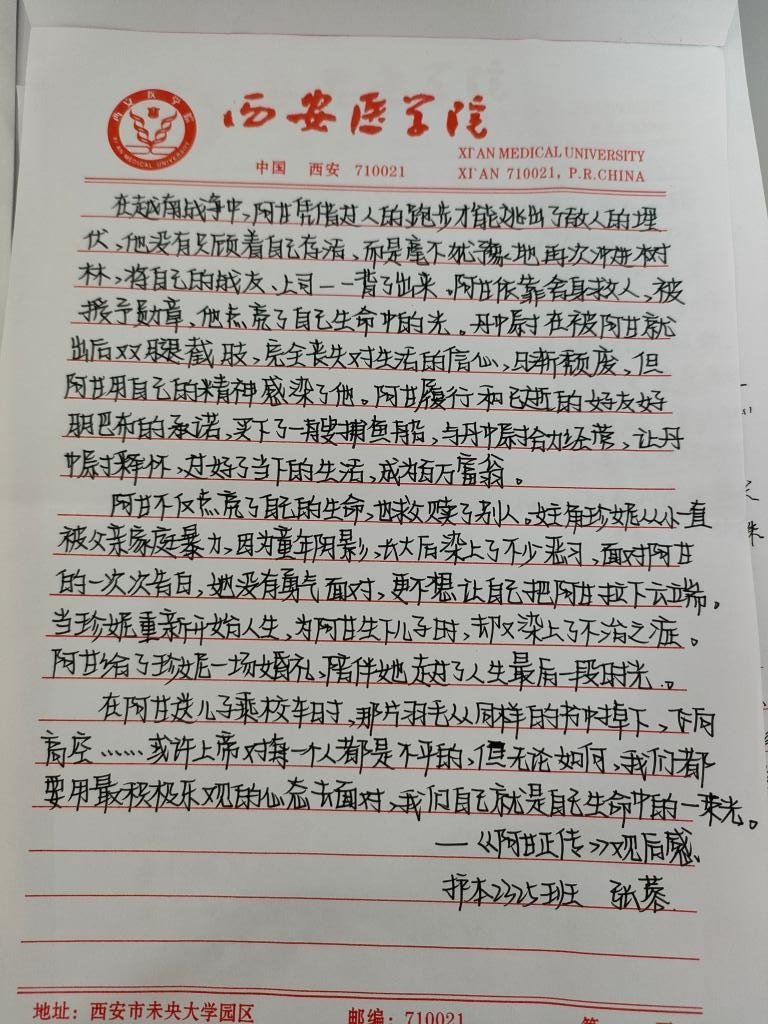 西安医学院
XI'AN MEDICAL UNIVERSITY
中国 西安 710021
XI'AN 710021, P.R.CHINA
在越南战争中，阿甘凭借过人的跑步才能逃出了敌人的埋
伏，他没有只顾着自己存活，而是毫不犹豫地再次冲进树
林，将自己的战友、上司一一背了出来，阿甘依靠舍身救人，被
授予勋章，他点亮了自己生命中的光。丹中尉在被阿甘救
出后双腿截肢，完全丧失对生活的信心，日渐颓废，但
阿甘用自己的精神感染了他。阿甘履行和已逝的好友好
朋巴布的承诺，买下了一艘捕鱼船，与丹中尉合力经营，让丹
中尉释怀，过好了当下的生活，成为百万富翁。
阿甘不仅点亮了自己的生命，也救赎了别人。女主角珍妮从小一直
被父亲家庭暴力，因为童年阴影，长大后染上了不少恶习，面对阿甘
的一次次告白，她没有勇气面对，更不想让自己把阿甘拉下云端。
当珍妮重新开始人生，为阿甘生下儿子时，却又染上了不治之症。
阿甘给了珍妮一场婚礼，陪伴她走过了人生最后一段时光。
在阿甘送儿子乘校车时，那片羽毛从同样的书中掉下，飞向
高空……或许上帝对每一个人都是不平的，但无论如何，我们都
要用最积极乐观的心态去面对，我们自己就是自己生命中的一束光。
—《阿甘正传》观后感
护本2325班 张蓉
地址：西安市未央大学园区
邮编：710021